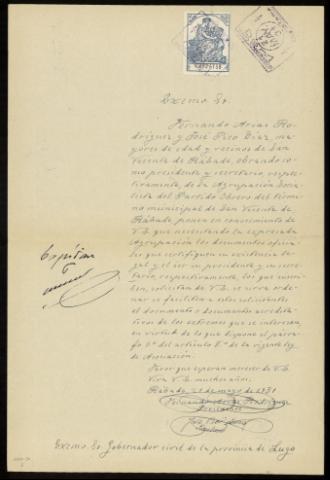 Excmo. Sr.
Fernando Arcas Rodríguez y José Pico Díaz, mayores de edad y vecinos de San
Vicente de Rábade, obrando como
presidente y secretario, respectivamente,
de la Agrupación Socialista
del Partido Obrero del término
municipal de San Vicente de
Rábade, ponen en conocimiento de
V.E. que necesitando la expresada
Agrupación los documentos oficiales
que certifiquen su existencia legal
y el ser su presidente y secretario,
respectivamente, los que suscriben,
solicitan de V.E. se sirva ordenar
se faciliten a estos solicitantes
el documento o documentos acreditativos
de los extremos que se interesan,
en virtud de lo que dispone el párrafo
del artículo de la vigente ley
de Asociación.
Favor que esperan merecer de V.E.
Viva V.E. muchos años.
Rábade, de mayo de 1931
Excmo. Sr. Gobernador civil de la provincia de Lugo